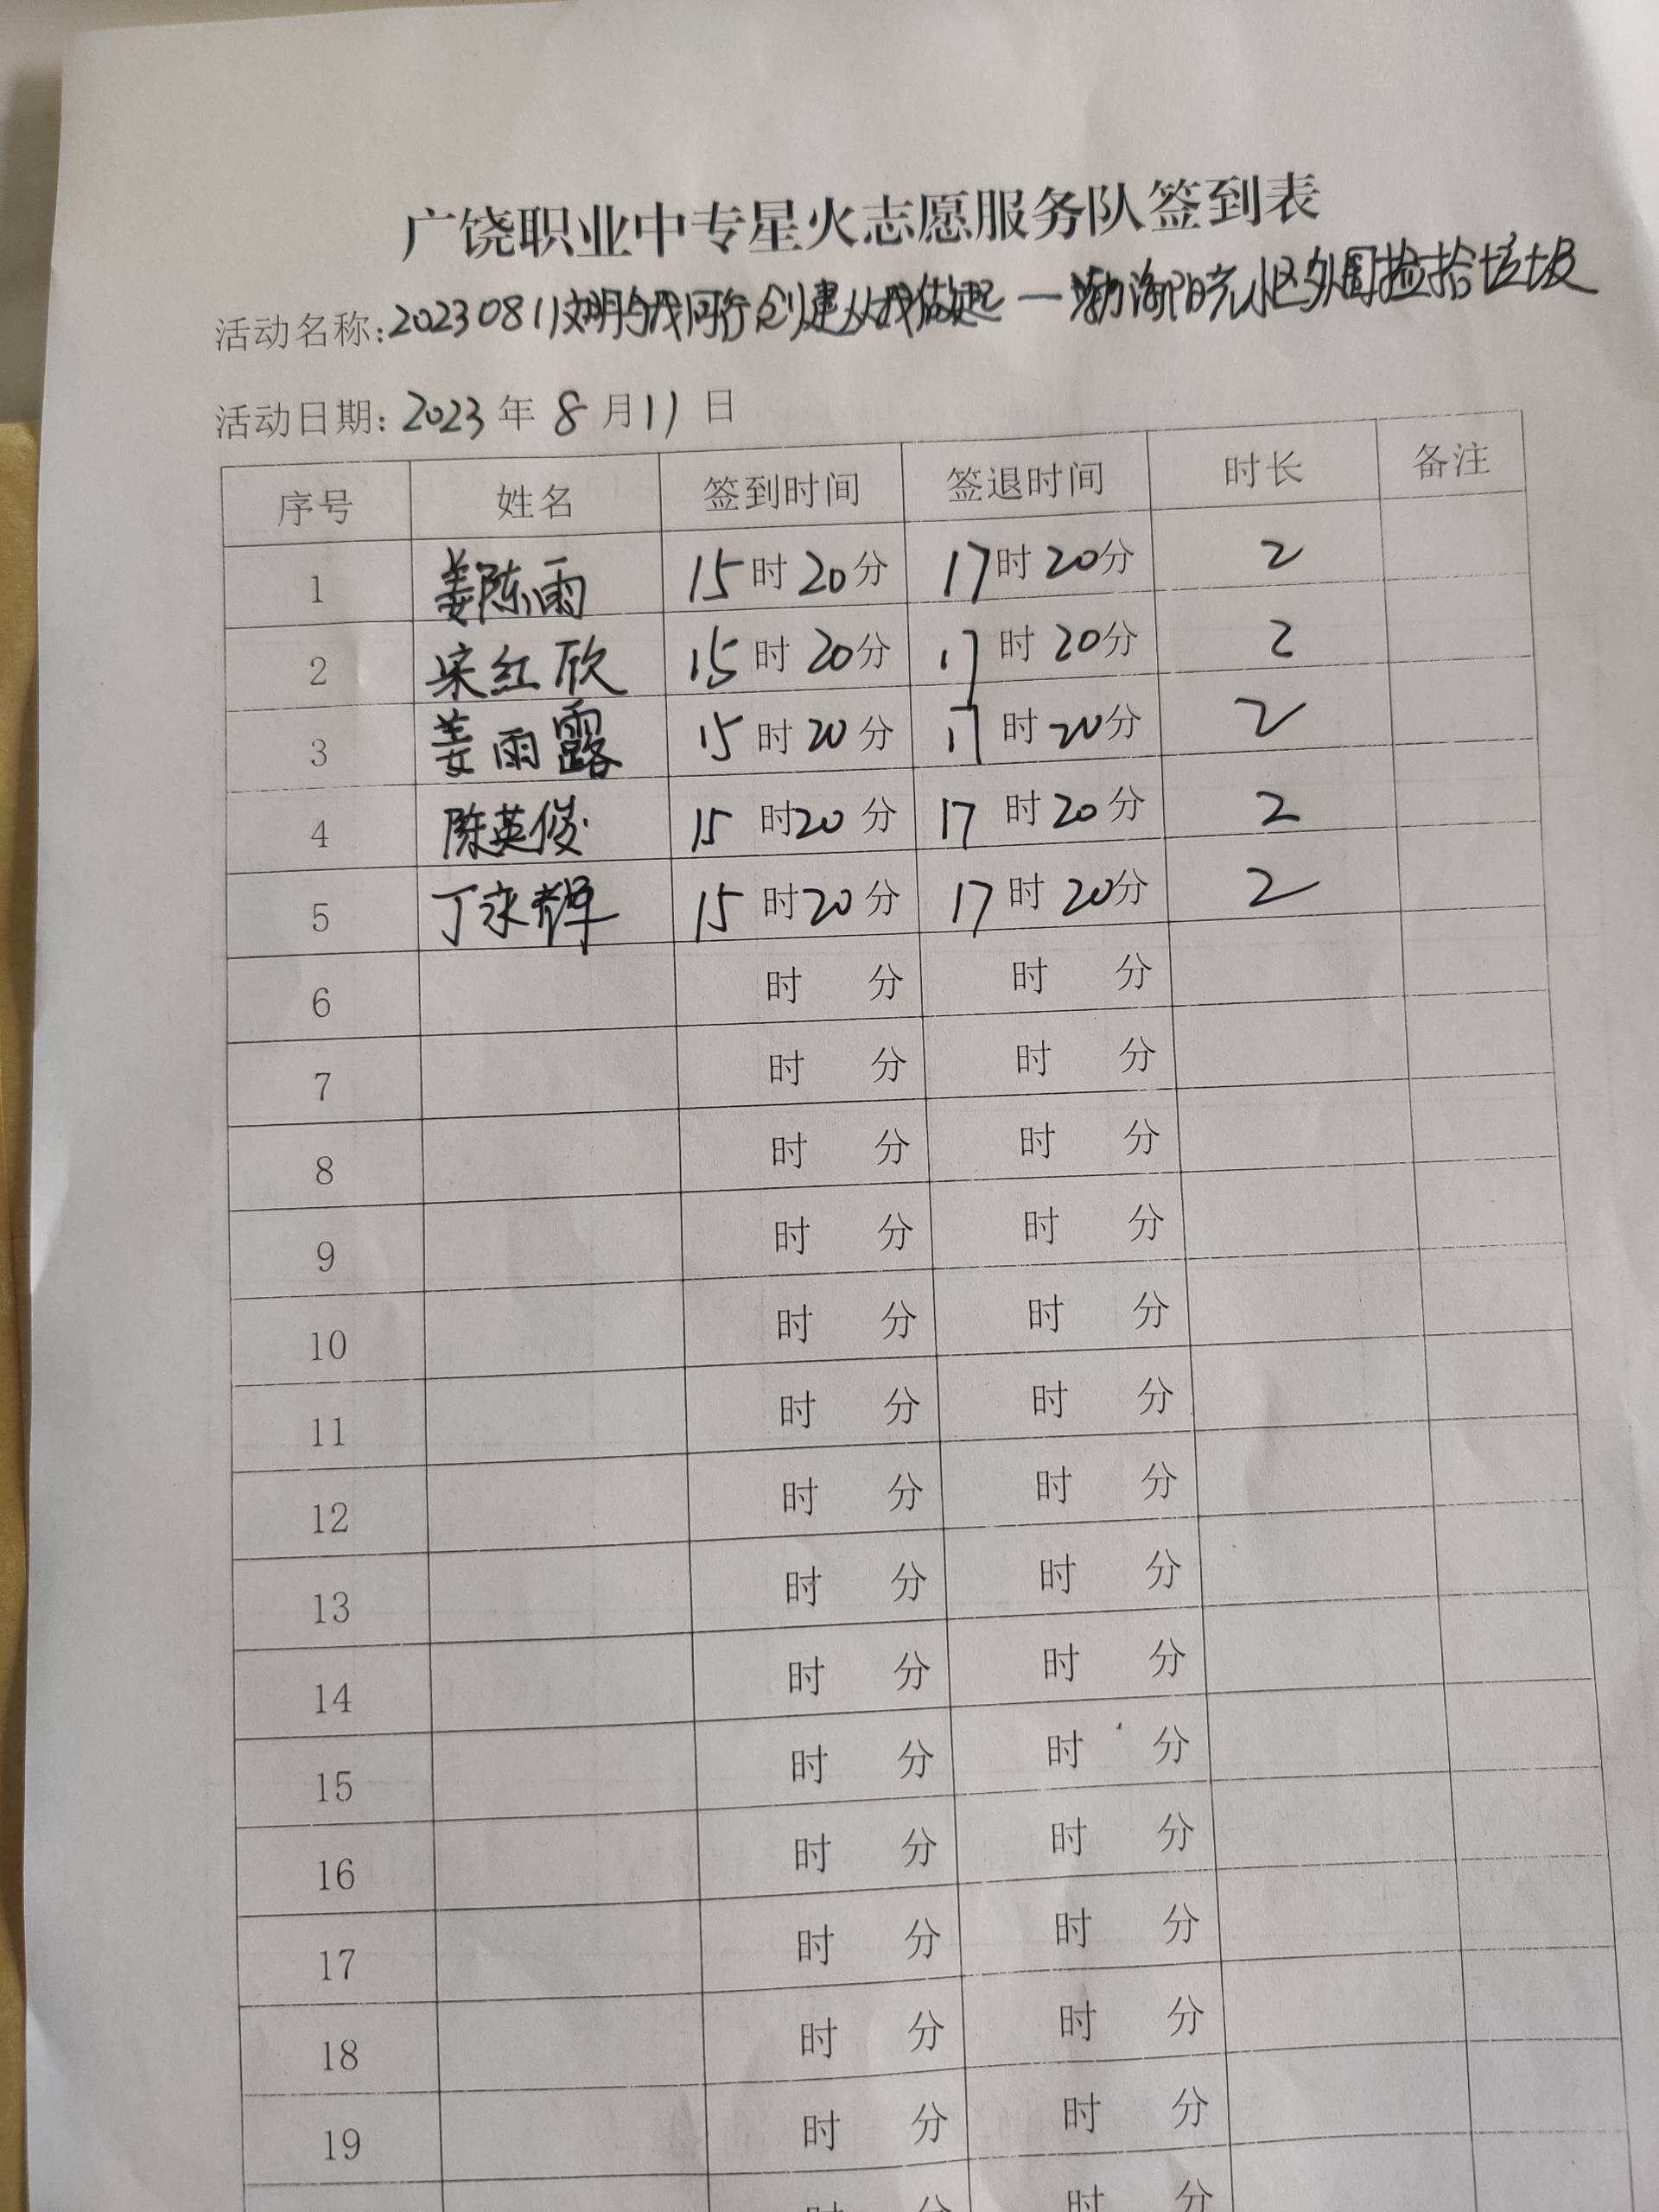 广饶职业中专星火志愿服务队签到表
活动名称:20230811文明与我同行创建从我做起—渤海阳光小区外围捡拾垃圾
活动日期:2023年8月11日
序号 姓名 签到时间 签退时间 时长 备注
1 姜陈雨 15时20分 17时20分 2
2 宋红欣 15时20分 17时20分 2
3 姜雨露 15时20分 17时20分 2
4 陈英俊 15时20分 17时20分 2
5 丁永辉 15时20分 17时20分 2
6 时 分 时 分
7 时 分 时 分
8 时 分 时 分
9 时 分 时 分
10 时 分 时 分
11 时 分 时 分
12 时 分 时 分
13 时 分 时 分
14 时 分 时 分
15 时 分 时 分
16 时 分 时 分
17 时 分 时 分
18 时 分 时 分
19 时 分 时 分
时 分 时 分